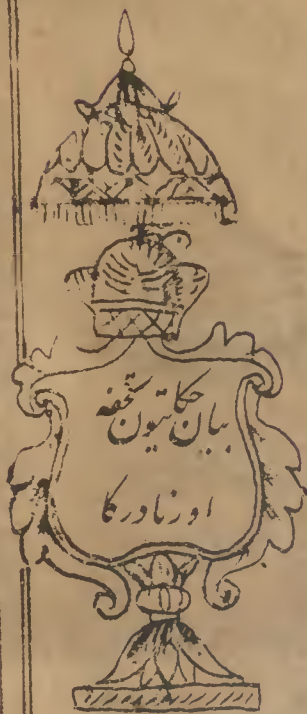 بیان حکایتیون تحفہ
اور نادر کا